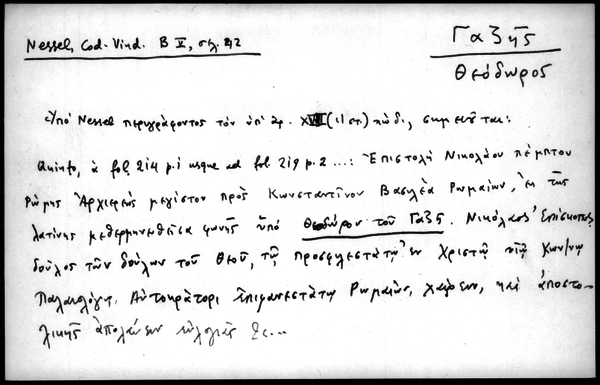 Nessel, Cod. Vind. B V, σελ. 212
Γαζῆς
Θεόδωρος
Ὑπὸ Nessel περιγράφοντος τὸν ὑπ' ἀρ. κώδ., σημειοῦται:
Quinto, à fol. 214 p. 1 usque ad fol. 219 p. 2 ...: Ἐπιστολὴ Νικολάου πέμπτου
Ῥώμης Ἀρχιερέως μεγίστου πρὸς Κωνσταντῖνον Βασιλέα Ῥωμαίων, ἐκ τῆς
λατίνης μεθερμηνευθεῖσα φωνῆς ὑπὸ Θεοδώρου τοῦ Γαζῆ. Νικόλαος Ἐπίσκοπος
δοῦλος τῶν δούλων τοῦ Θεοῦ, τῷ προσφιλεστάτῳ ἐν Χριστῷ υἱῷ Κων/νῳ
Παλαιολόγῳ, Αὐτοκράτορι ἐπιφανεστάτῳ Ῥωμαίων, χαίρειν, καὶ ἀποστο-
λικῆς ἀπολαύειν εὐλογίας &c...